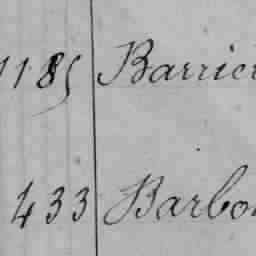 1185 Barrier
433 Barbo